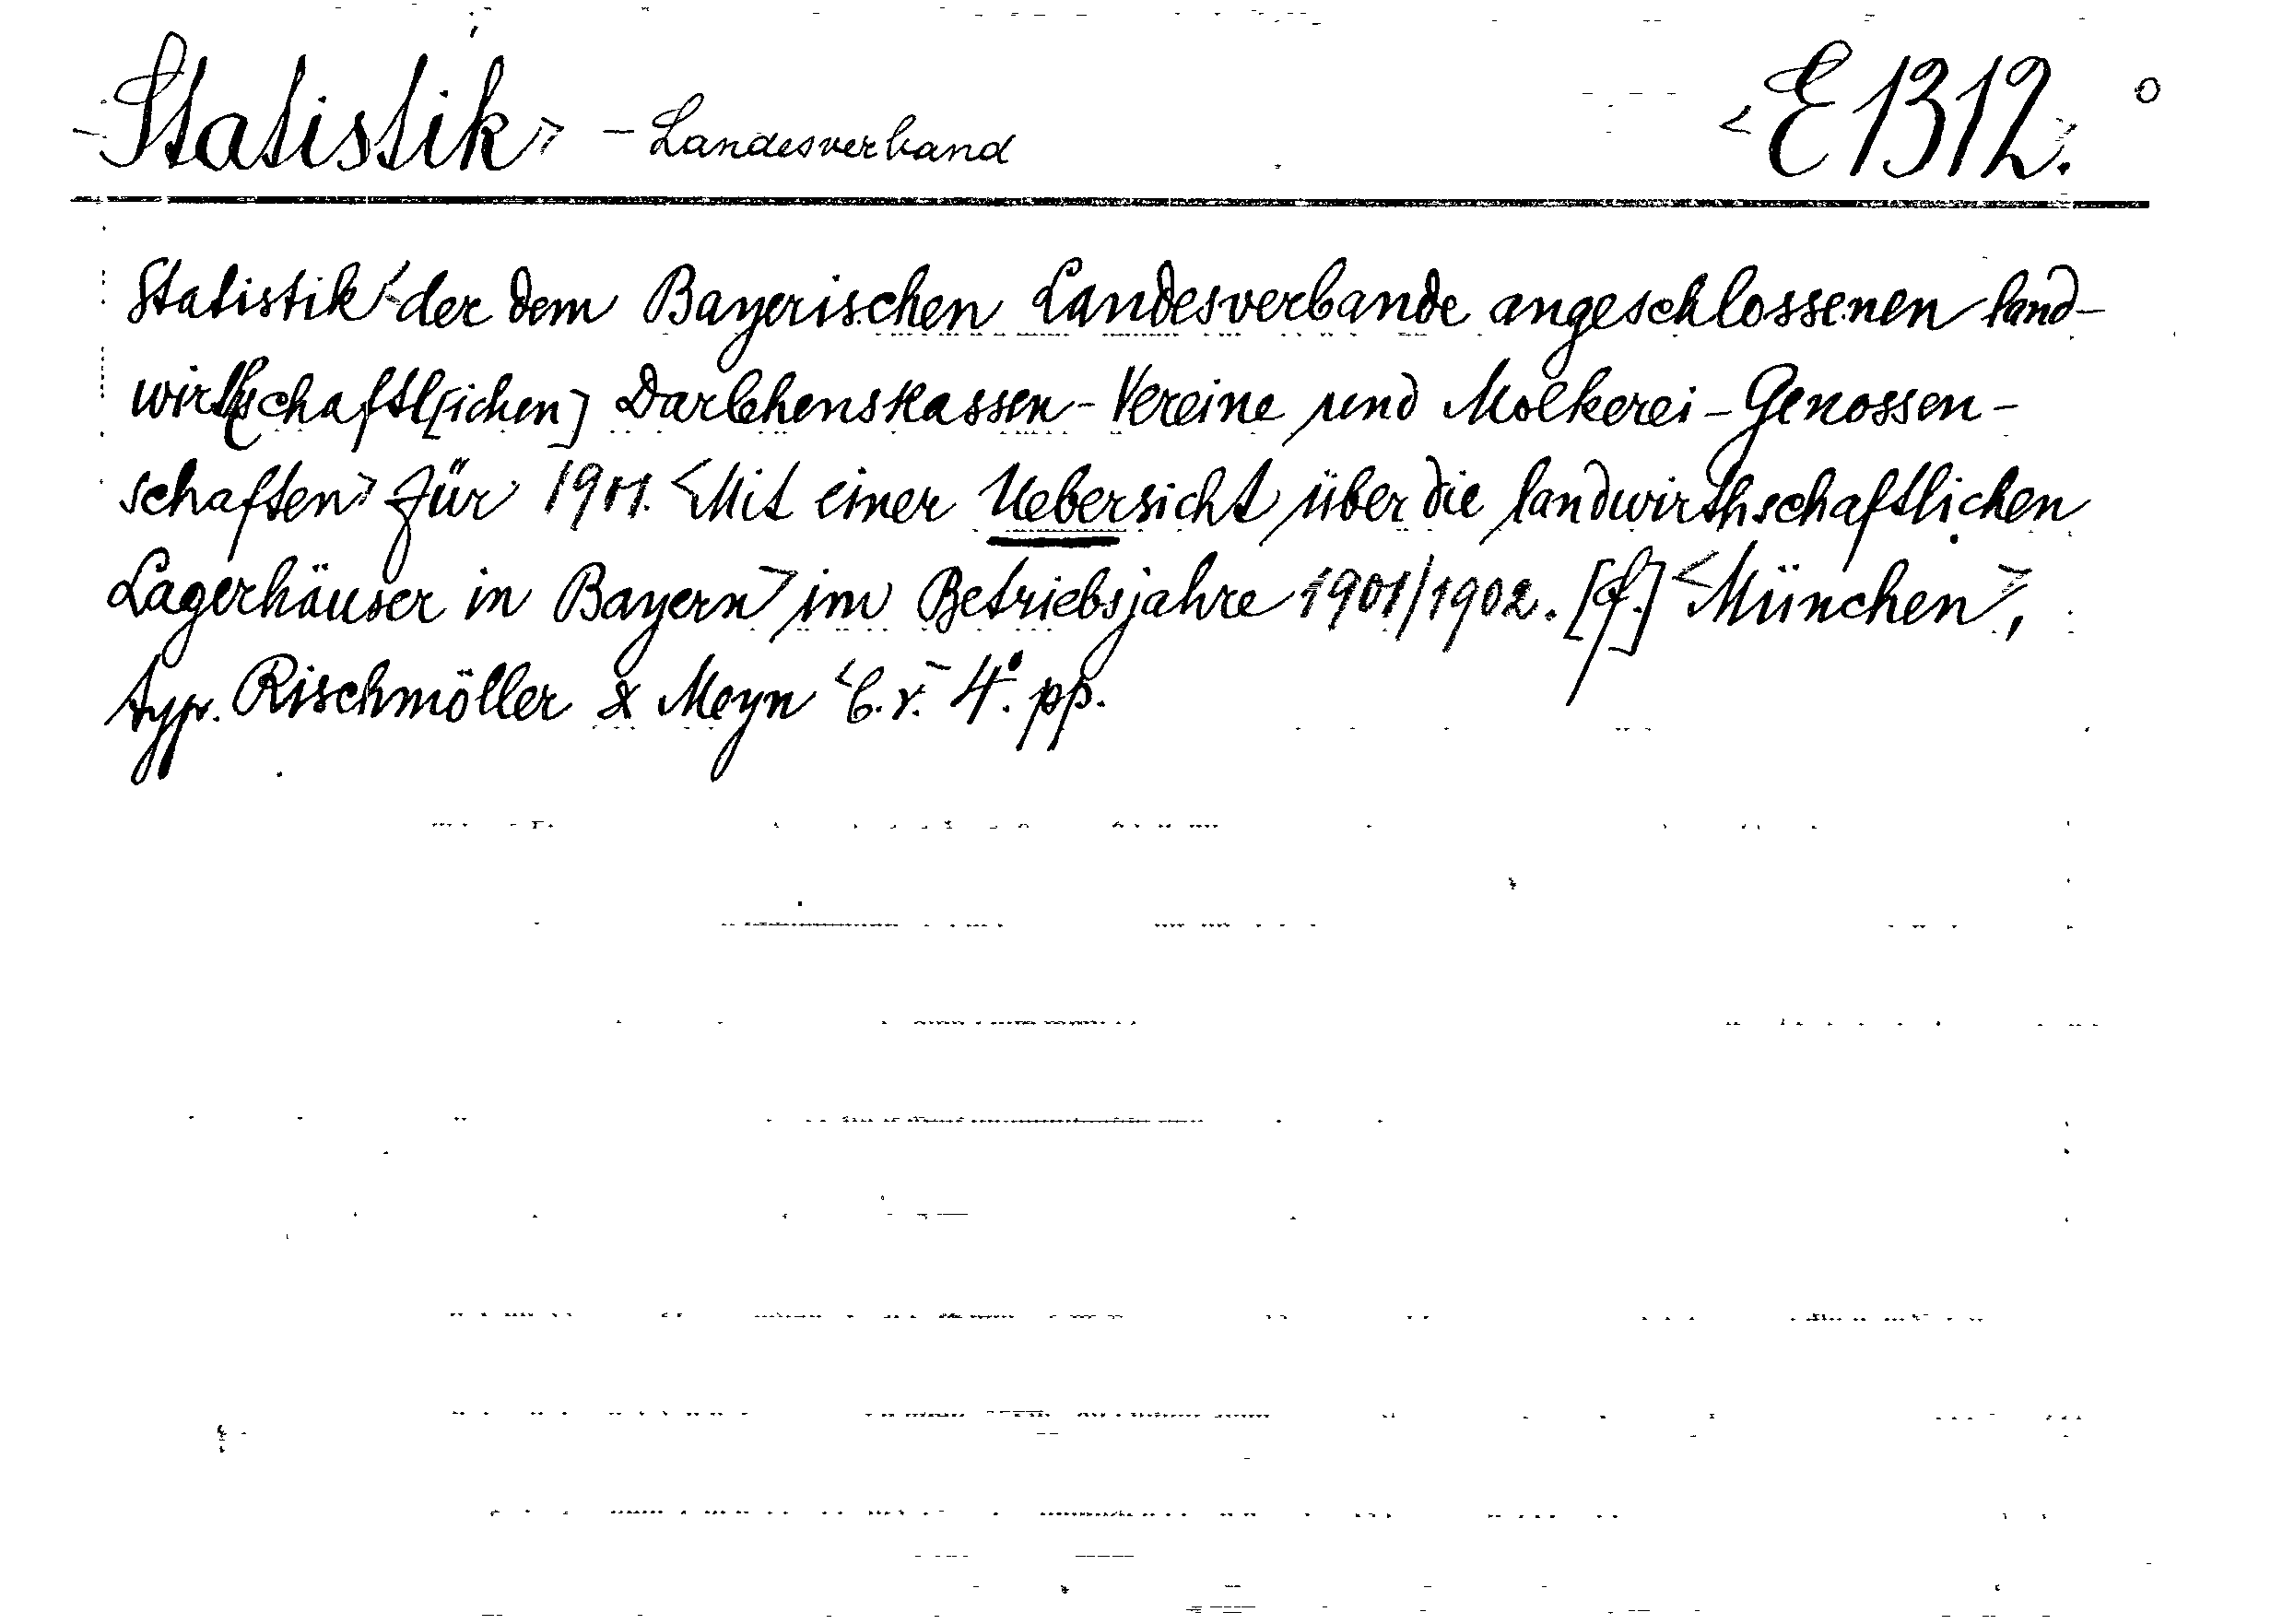 <Statistik> - Landesverband <E 1312.>
Statistik <der dem Bayerischen Landesverbande angeschlossenen land-
wirthschaftl[ichen] Darlehenskassen-Vereine und Molkerei-Genossen-
schaften> für 1901. <Mit einer Uebersicht über die landwirthschaftlichen
Lagerhäuser in Bayern> im Betriebsjahre 1901/1902. [f.] <München>,
typ. Rischmöller & Meyn 4°. pp.